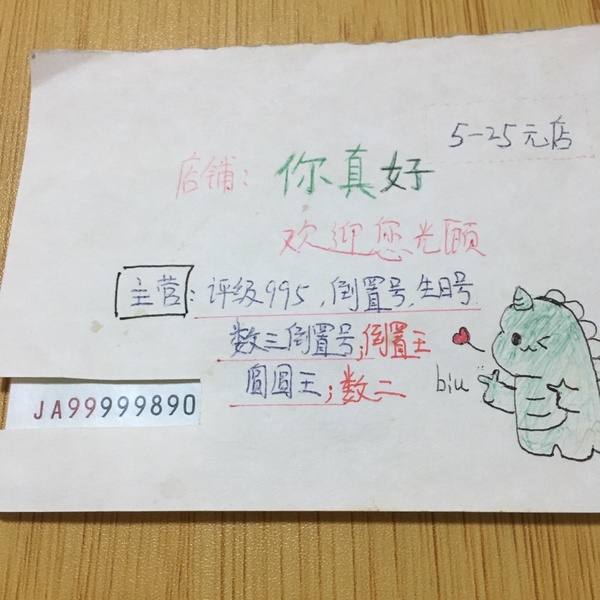 5-25元店
店铺：你真好
欢迎您光顾
主营：评级995，倒置号，生日号
数三倒置号；倒置王
圆圆王；数二
biu
JA99999890